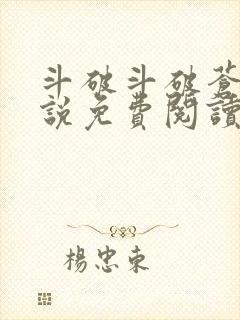 斗破斗破蒼
說免費閱讀
楊忠東